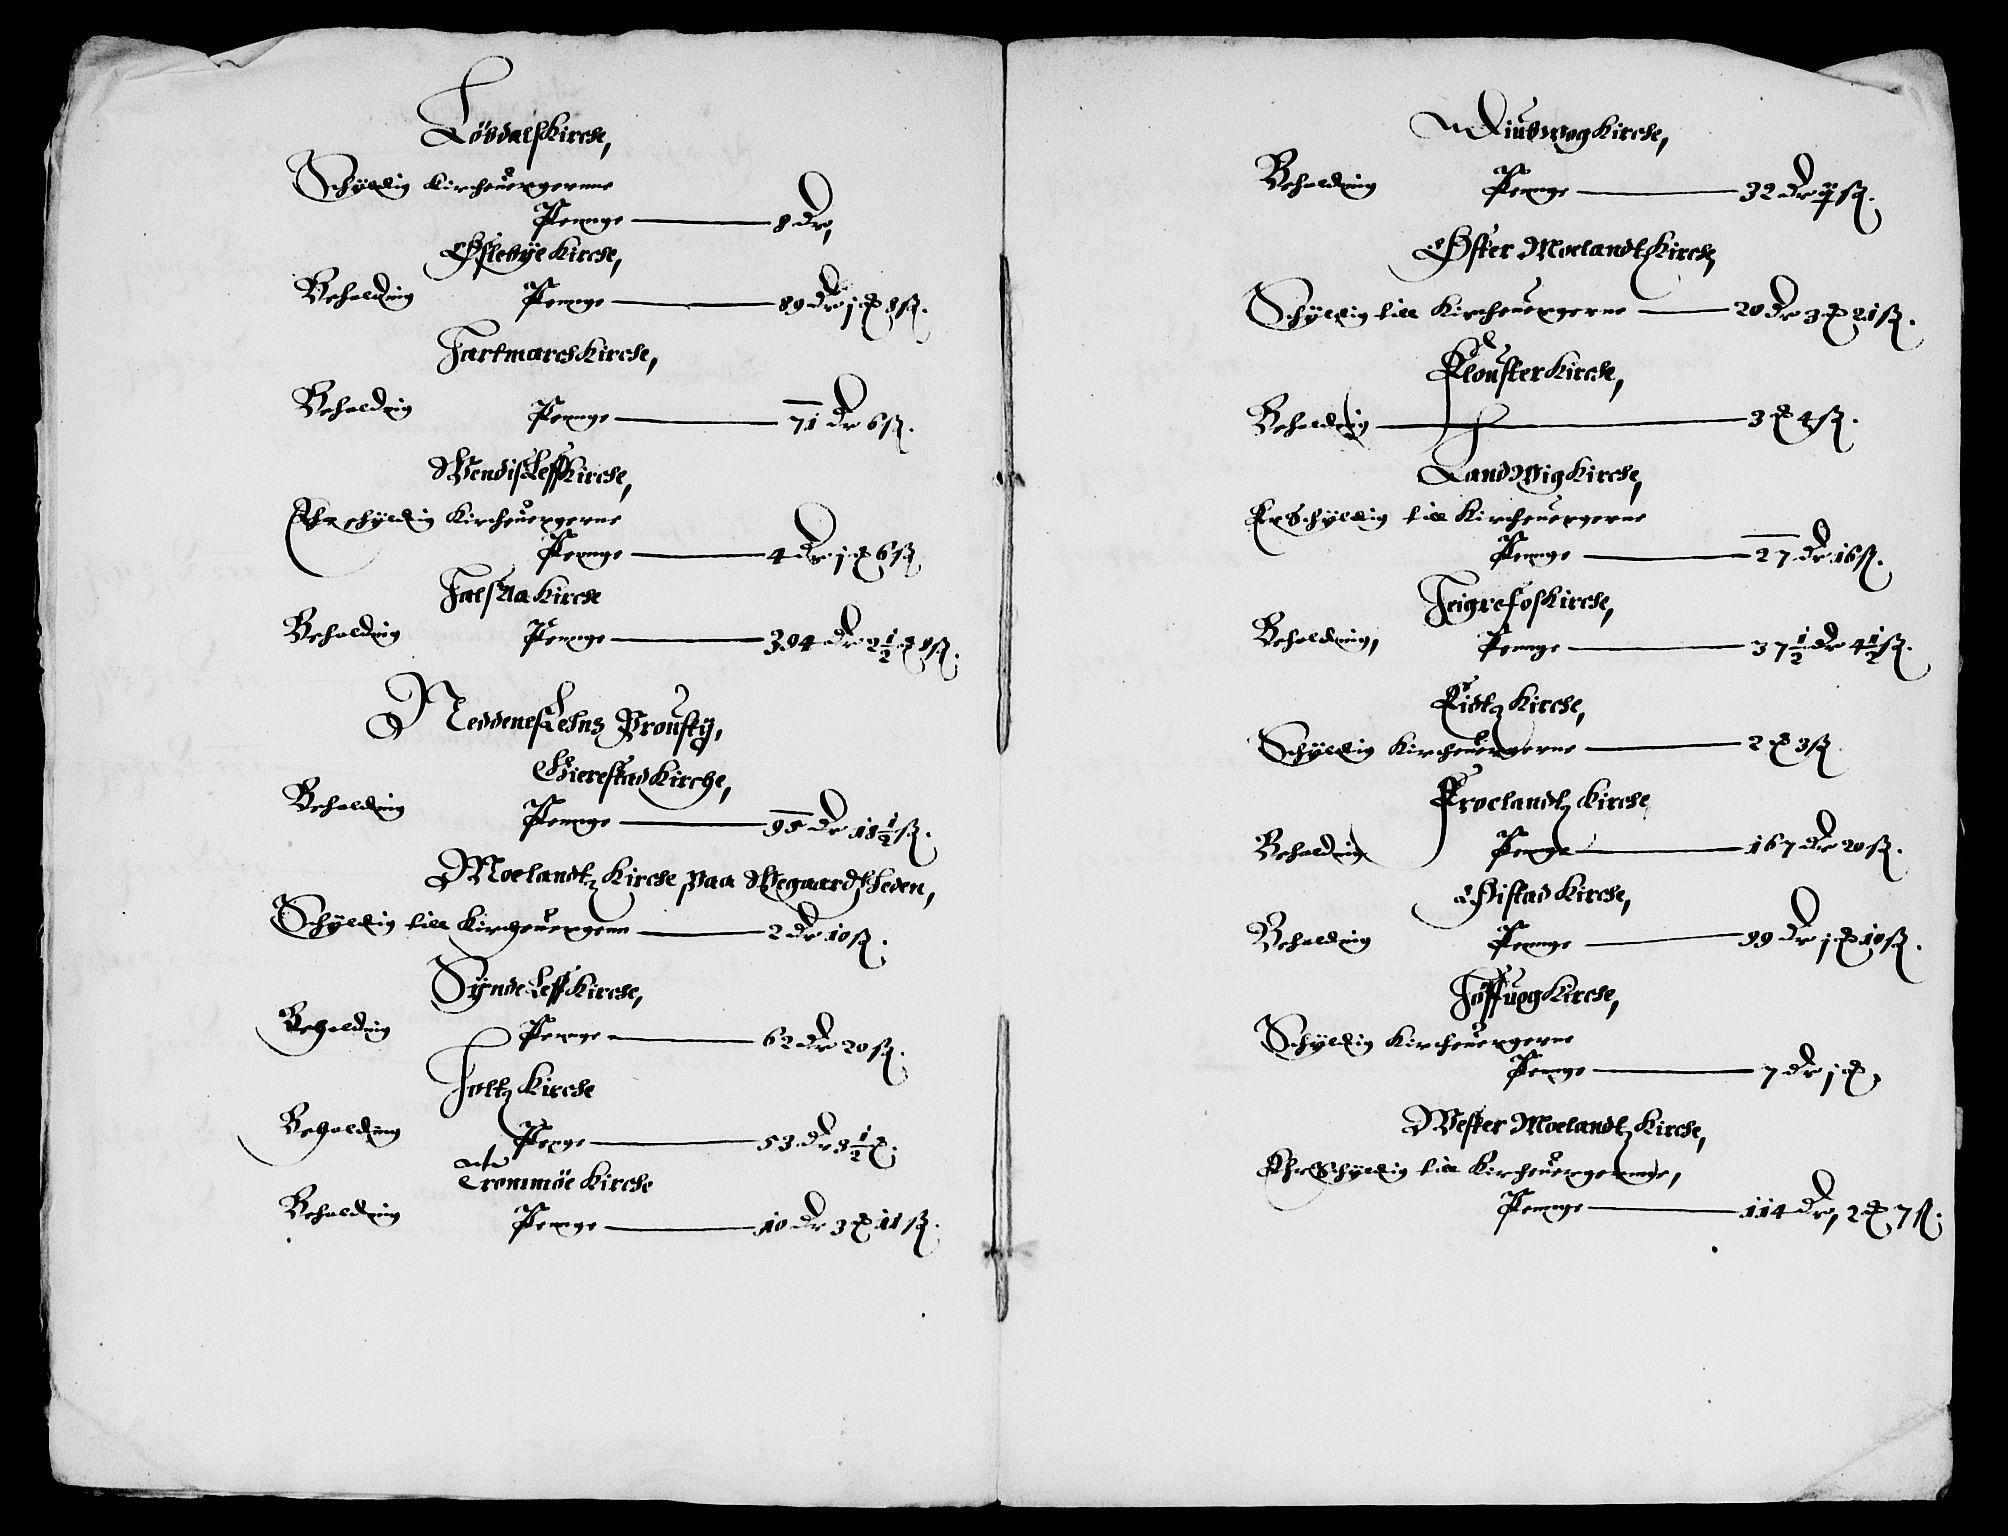 Løvdals Kirche,
Schÿldig Kircheuergernne
Penge 8 Dr,
Øslebÿe Kirche,
Beholding Penge 89 Dr j ℔ 8 ß.
Hartmarck Kirche,
Beholding Penge 71 Dr 6 ß.
Wendisleff Kirche,
Ehr schÿldig Kircheuergerne
Penge 4 Dr j ℔ 6 ß
Kirche
Beholding Penge 394 Dr 2½ ℔ 8 ß.
Neddenes Lehns Proustÿ,
Gierestad Kirche,
Beholding Penge 95 Dr 18½ ß.
Moelandtz Kirche paa Wegaardsheden,
Schÿldig till Kircheuergenn 2 Dr 10 ß.
Sÿndeleff Kirche,
Beholding Penge 62 Dr 20 ß.
Holtz Kirche
Beholding Penge 53 Dr 3½ ℔.
Trommöe Kirche
Beholding Penge 10 Dr 3 ℔ 11 ß.
Kirche,
Beholding Penge 32 Dr ß.
Øster Moelandtz Kirche,
Schÿldig till Kircheuergerne 20 Dr 3 ℔ 21 ß.
Kirche,
Beholding 3 ℔ 4 ß.
Landwig Kirche,
Er Schÿldig till Kircheuergerne
Penge 27 Dr 16 ß.
Heigrefos Kirche,
Beholding, Penge 37½ Dr 4½ ß.
Eidtz Kirche,
Schÿldig Kircheuergerne 2 ℔ 3 ß
Froelandtz Kirche
Beholding Penge 167 Dr 20 ß.
Øistad Kirche,
Beholding Penge 99 Dr j ℔ 10 ß.
Høffuog Kirche,
Schÿldig Kircheuergerne
Penge 7 Dr j ℔,
Wester Moelandtz Kirche,
Ehr Schÿldig till Kircheuergernne,
Penge 114 Dr, 2 ℔ 7 ß.